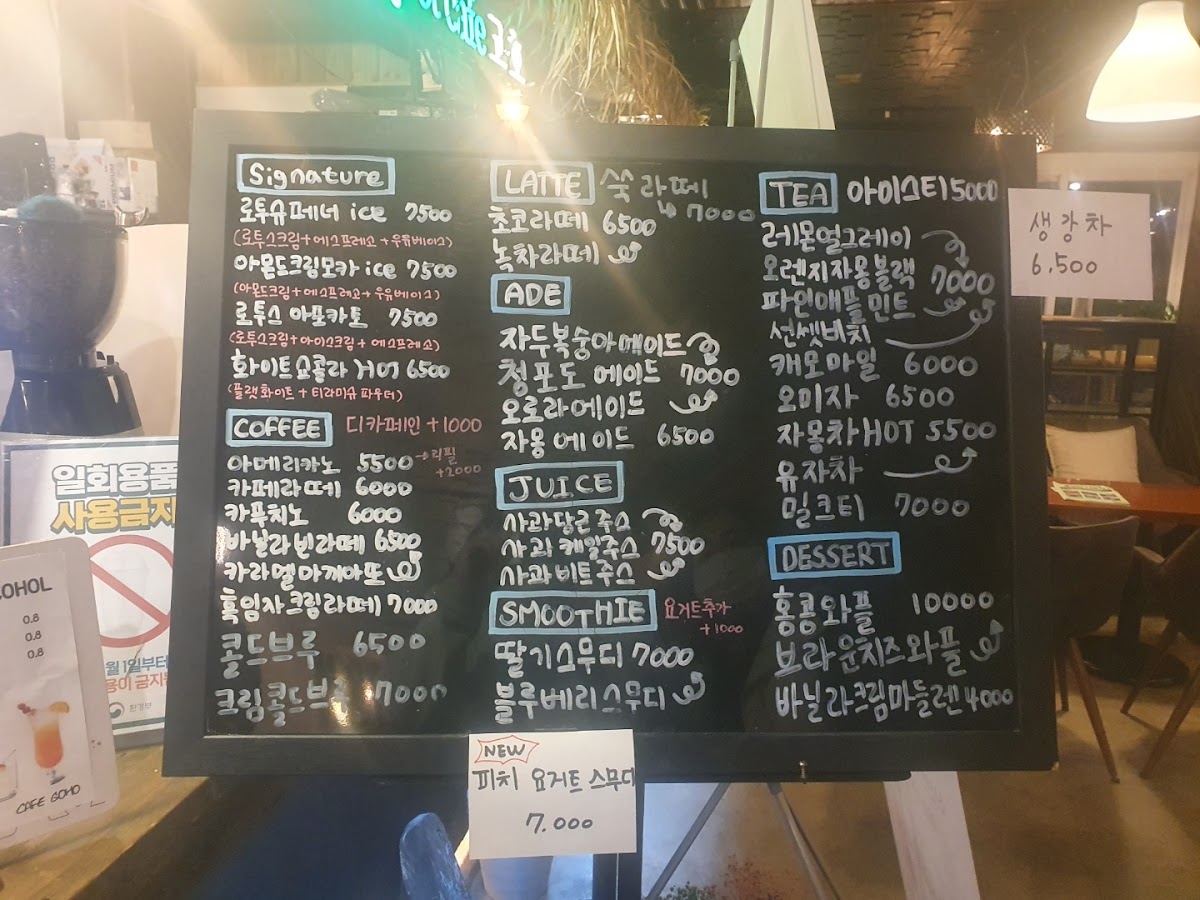 Cafe 고호
Signature
로투슈페너 ice 7500
(로투스크림+에스프레소+우유베이스)
아몬드크림모카 ice 7500
(아몬드크림+에스프레소+우유베이스)
로투스 아포카토 7500
(로투스크림+아이스크림+에스프레소)
화이트쇼콜라 HOT 6500
(플랫화이트+티라미슈 파우더)
COFFEE 디카페인 +1000
아메리카노 5500 →리필
+2000
카페라떼 6000
카푸치노 6000
바닐라빈라떼 6500
카라멜마끼아또
흑임자크림라떼 7000
콜드브루 6500
크림콜드브루 7000
LATTE 쑥라떼
↳ 7000
초코라떼 6500
녹차라떼
ADE
자두복숭아에이드
청포도 에이드 7000
오로라에이드
자몽에이드 6500
JUICE
사과당근주스
사과케일주스 7500
사과비트주스
SMOOTHIE 요거트추가
+1000
딸기스무디 7000
블루베리스무디
TEA 아이스티 5000
레몬얼그레이
오렌지자몽블랙 7000
파인애플민트
선셋비치
캐모마일 6000
오미자 6500
자몽차 HOT 5500
유자차
밀크티 7000
DESSERT
홍콩와플 10000
브라운치즈와플
바닐라크림마들렌 4000
생강차
6,500
NEW
피치 요거트 스무디
7.000
일회용품
사용금지
월 1일부터
용이 금지
환경부
COHOL
0.8
0.8
0.8
CAFE GOHO